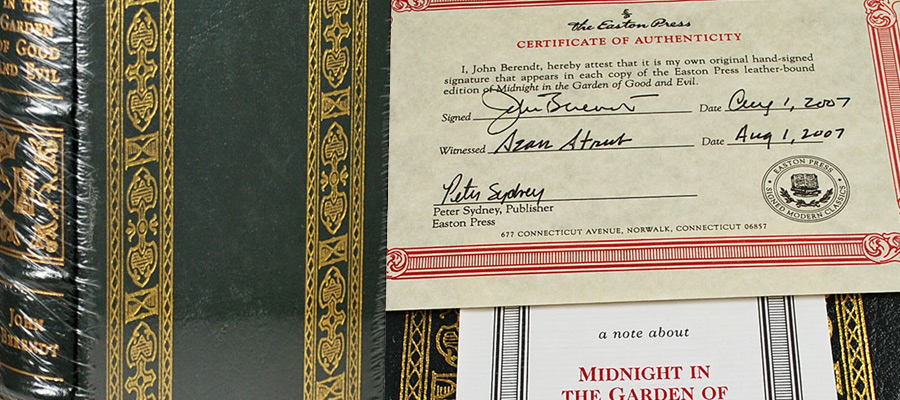 IN THE
GARDEN
OF GOOD
AND EVIL
JOHN
BERENDT
The Easton Press
CERTIFICATE OF AUTHENTICITY
I, John Berendt, hereby attest that it is my own original hand-signed
signature that appears in each copy of the Easton Press leather-bound
edition of Midnight in the Garden of Good and Evil.
Signed John Berendt Date Aug 1, 2007
Witnessed Sean Strub Date Aug 1, 2007
Peter Sydney
Peter Sydney, Publisher
Easton Press
EASTON PRESS
SIGNED MODERN CLASSICS
677 CONNECTICUT AVENUE, NORWALK, CONNECTICUT 06857
a note about
MIDNIGHT IN
THE GARDEN OF